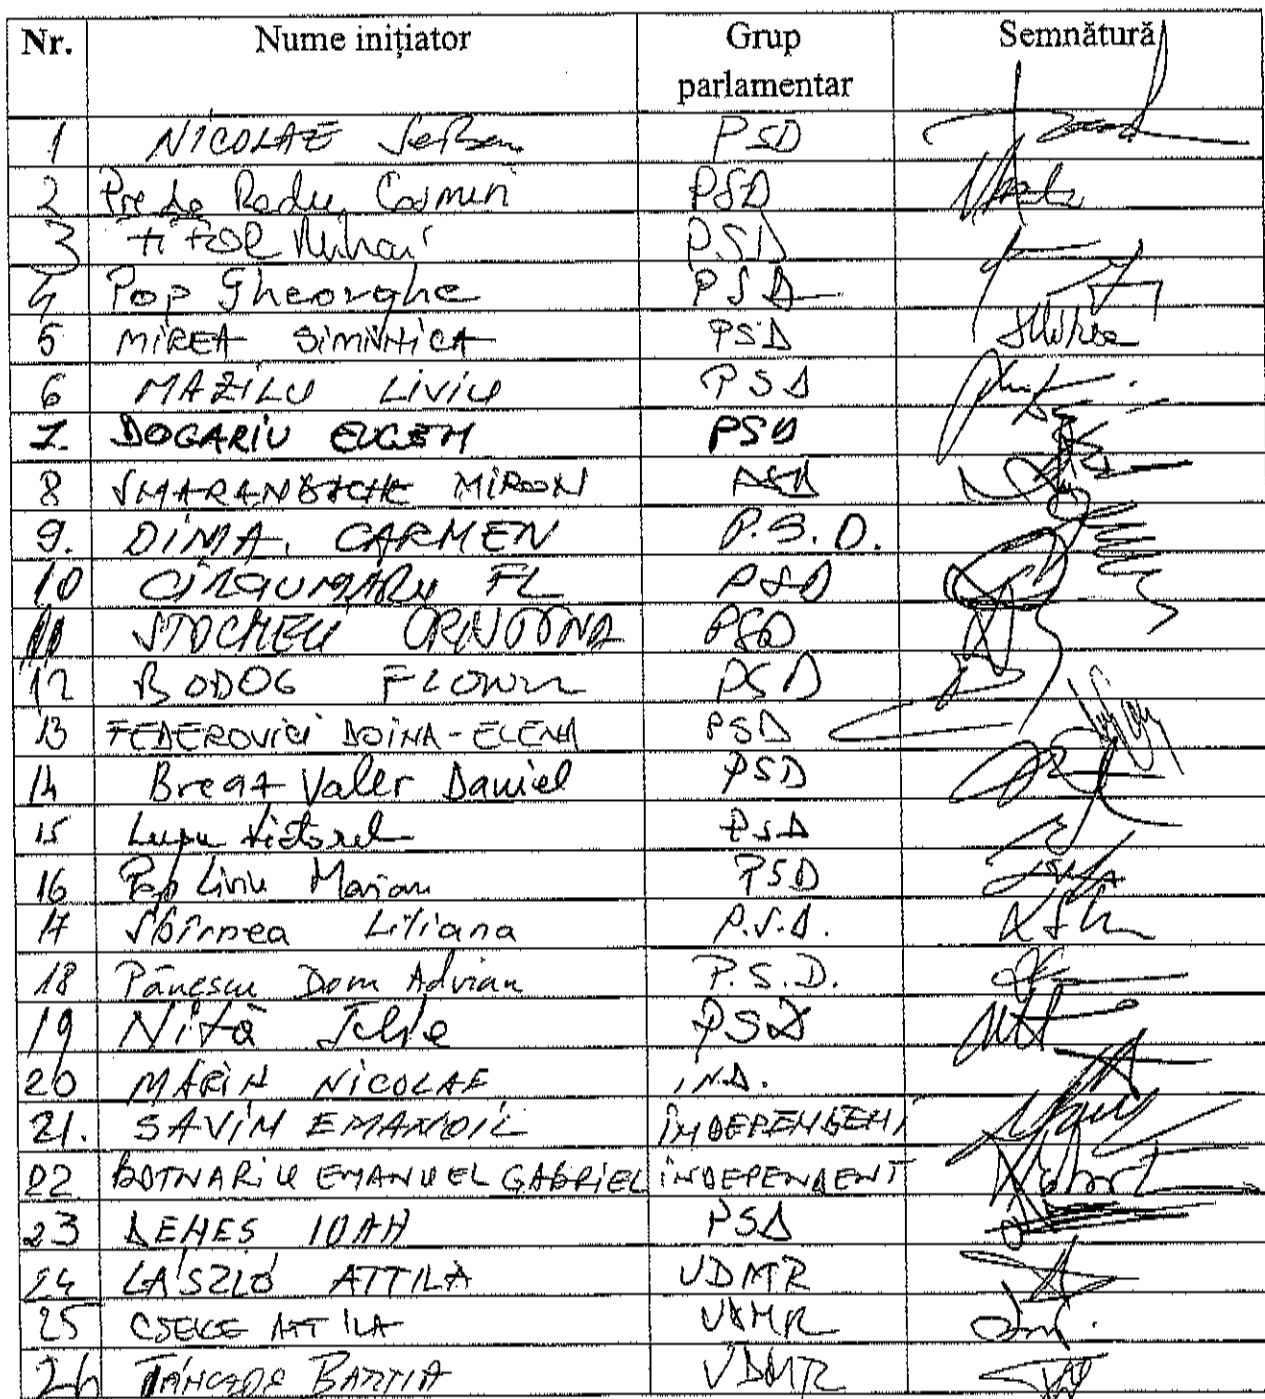 Nr. Nume inițiator Grup parlamentar Semnătură
1 NICOLAE Șerban PSD
2 Preda Radu Cosmin PSD
3 FIFOR Mihai PSD
4 Pop Gheorghe PSD
5 MIREA SIMINICA PSD
6 MAZILU LIVIU PSD
7. DOGARIU EUGEN PSD
8 SMARANDACHE MIRON PSD
9. DINA CARMEN P.S.D.
10 CÎRCIUMARU FL PSD
11 STOCHECI CRISTINA PSD
12 BODOG FLORIN PSD
13 FEDEROVICI DOINA-ELENA PSD
14 Breaz Valer Daniel PSD
15 Lupu Victorel PSD
16 Pop Liviu Marian PSD
17 Sbîrnea Liliana P.S.D.
18 Pănescu Doru Adrian P.S.D.
19 Niță Ilie PSD
20 MARIN NICOLAE IND.
21. SAVIN EMANOIL INDEPENDENT
22 BOTNARIU EMANUEL GABRIEL INDEPENDENT
23 DENEȘ IOAN PSD
24 LÁSZLÓ ATTILA UDMR
25 CSEKE ATTILA UDMR
26 UDMR